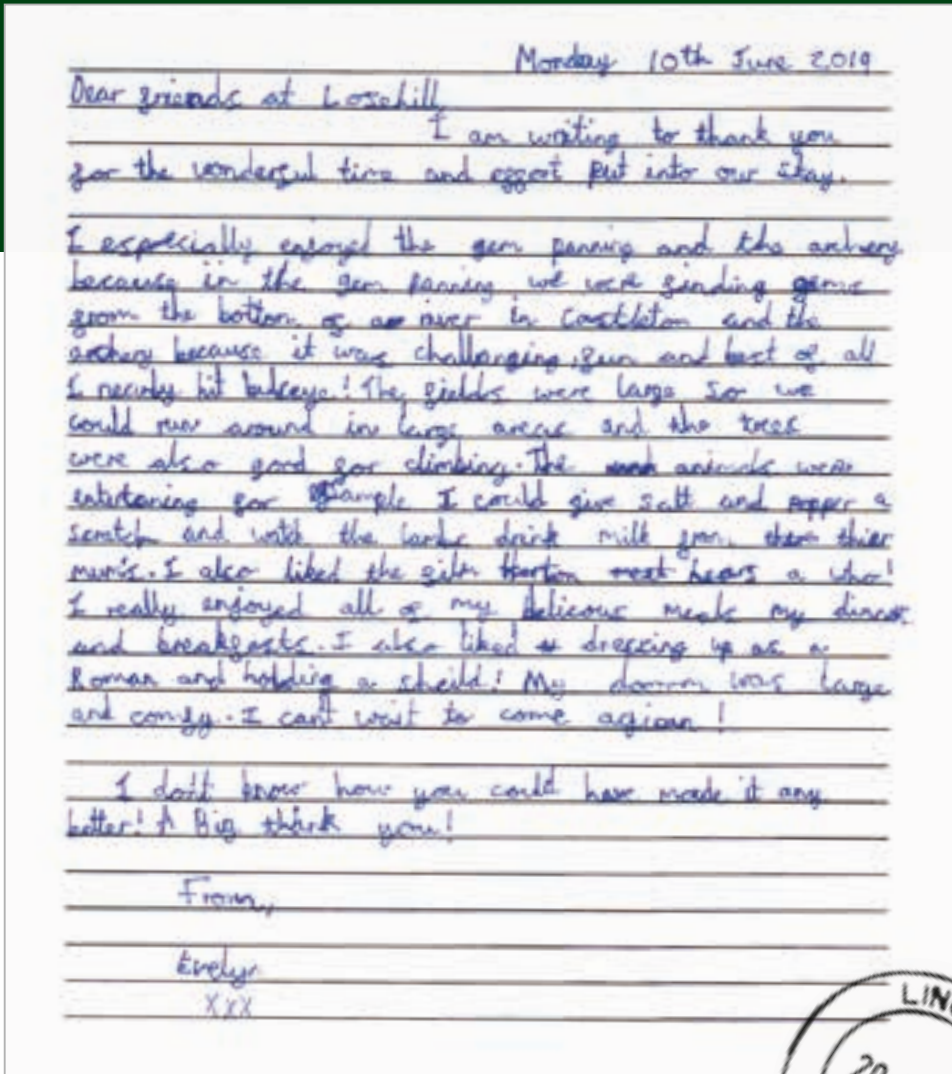 Monday 10th June 2019
Dear friends at Losehill
I am writing to thank you
for the wonderful time and effort put into our stay.
I especially enjoyed the gem panning and the archery
because in the gem panning we were finding gems
from the bottom of a river in Castleton and the
archery because it was challenging, fun and best of all
I nearly hit bulseye! The fields were large so we
could run around in large areas and the trees
were also good for climbing. The animals were
entertaning for Example I could give salt and pepper a
scratch and watch the lambs drink milk from thier
mum's. I also liked the film horton hears a who!
I really enjoyed all of my delicous meals my dinners
and breakfasts. I also liked dressing up as a
Roman and holding a sheild! My dorm was large
and comfy. I can't wait to come agiean!
I don't know how you could have made it any
better! A Big thank you!
From,,
Evelyn
XXX
LIN
20